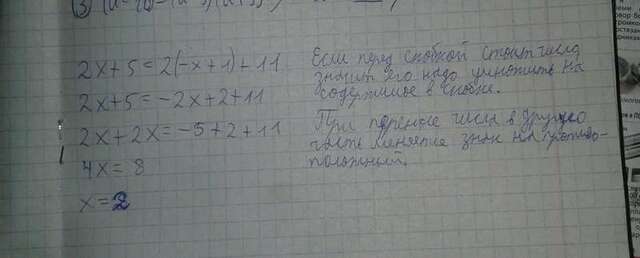 3
2x+5=2(-x+1)+11
2x+5=-2x+2+11
2x+2x=-5+2+11
4x=8
x=2
Если перед скобкой стоит число
значит его надо умножить на
содержимое в скобке.
При переносе числа в другую
часть меняется знак на противо-
положный.